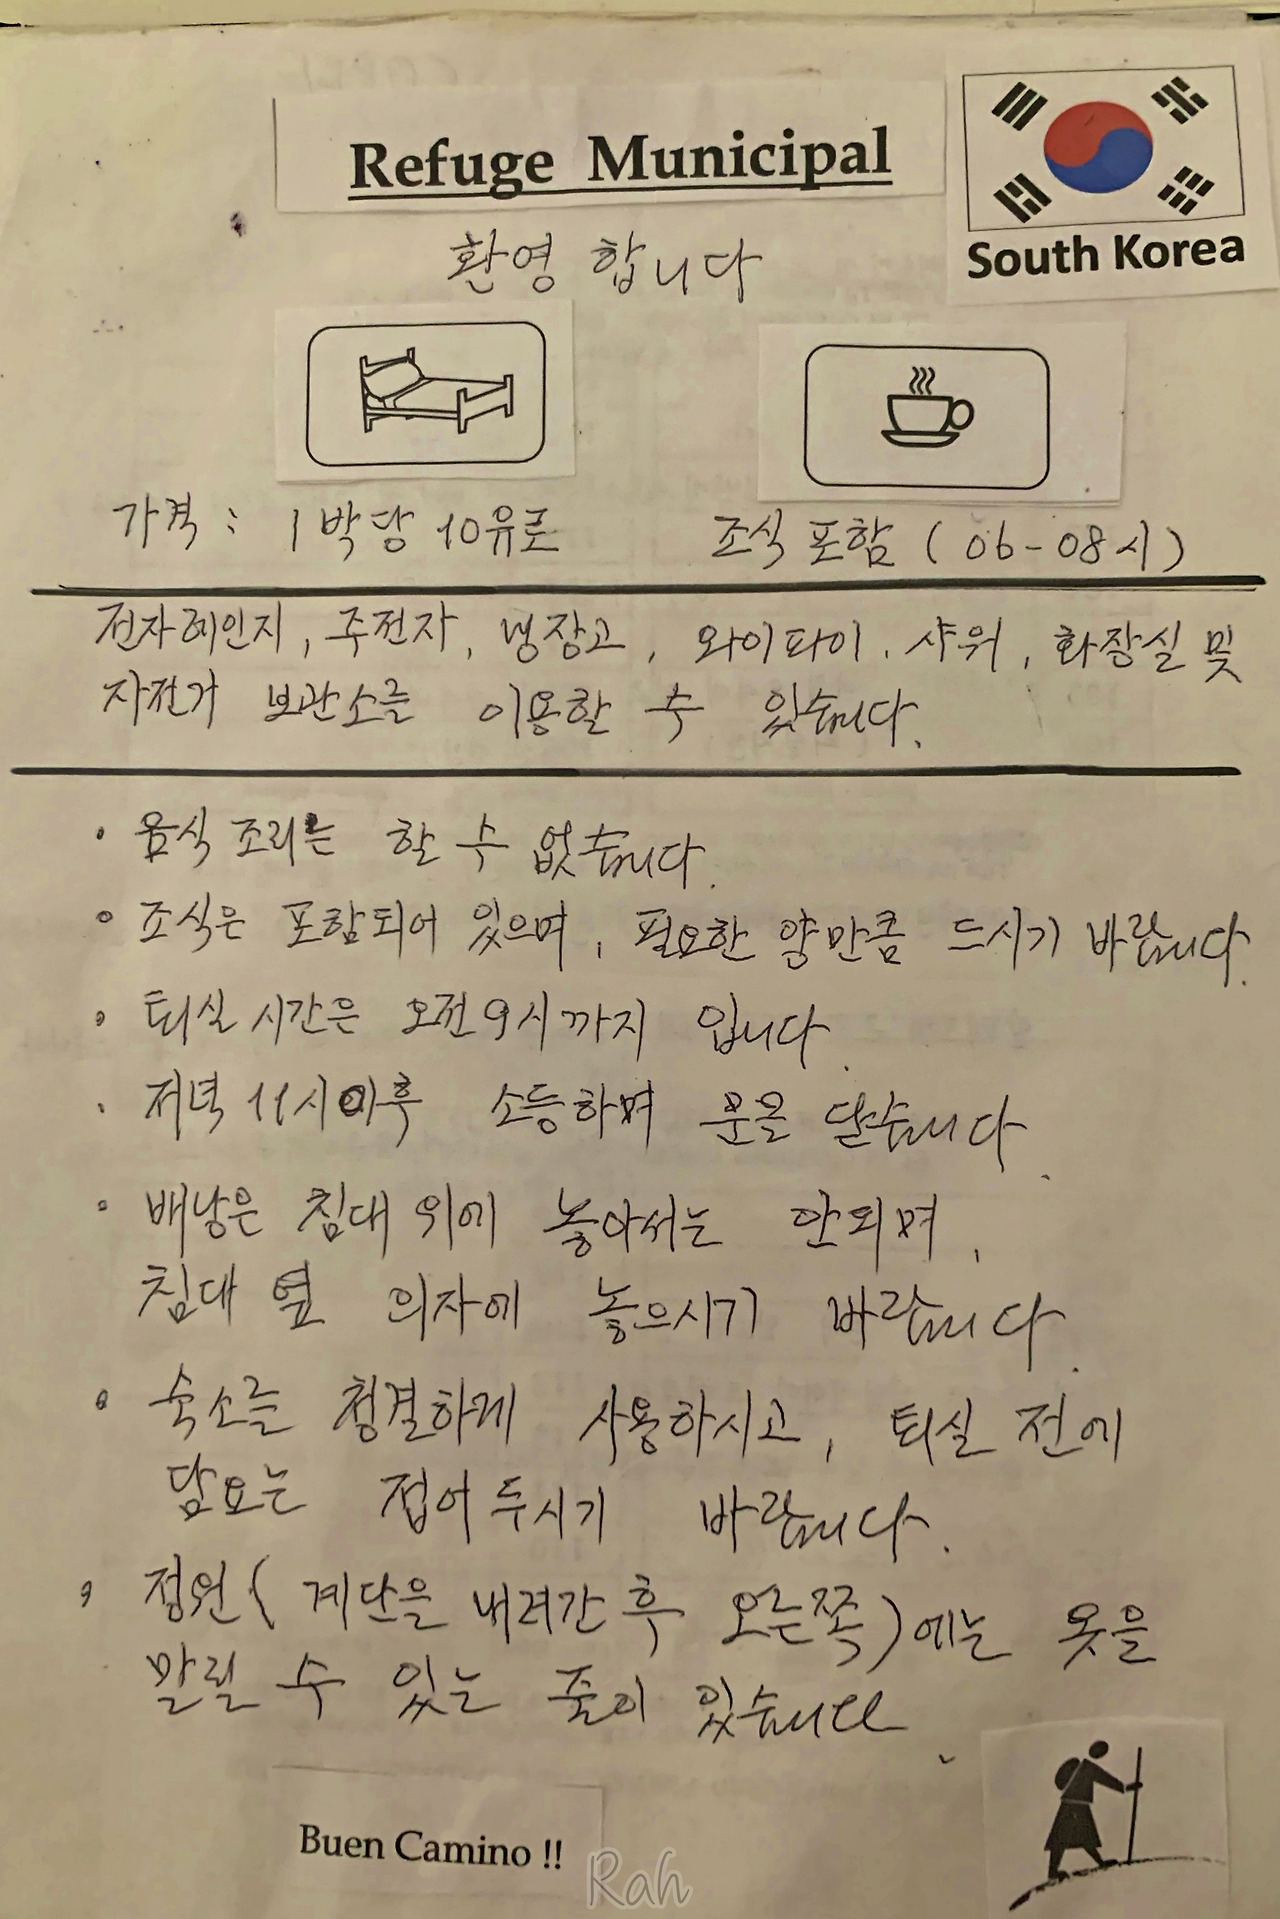 Refuge Municipal
South Korea
환영 합니다
가격 : 1박당 10유로
조식 포함 ( 06-08시 )
전자레인지, 주전자, 냉장고, 와이파이, 샤워, 화장실 및
자전거 보관소를 이용할 수 있습니다.
• 음식 조리는 할 수 없습니다.
• 조식은 포함되어 있으며, 필요한 양만큼 드시기 바랍니다.
• 퇴실 시간은 오전 9시 까지 입니다.
• 저녁 11시 이후 소등하며 문을 닫습니다.
• 배낭은 침대 위에 놓아서는 안되며,
침대 옆 의자에 놓으시기 바랍니다.
• 숙소를 청결하게 사용하시고, 퇴실 전에
담요는 접어 두시기 바랍니다.
• 정원( 계단을 내려간 후 오른쪽)에는 옷을
말릴 수 있는 줄이 있습니다.
Buen Camino !!
Rah